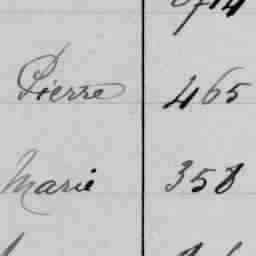 Pierre 465
Marie 358